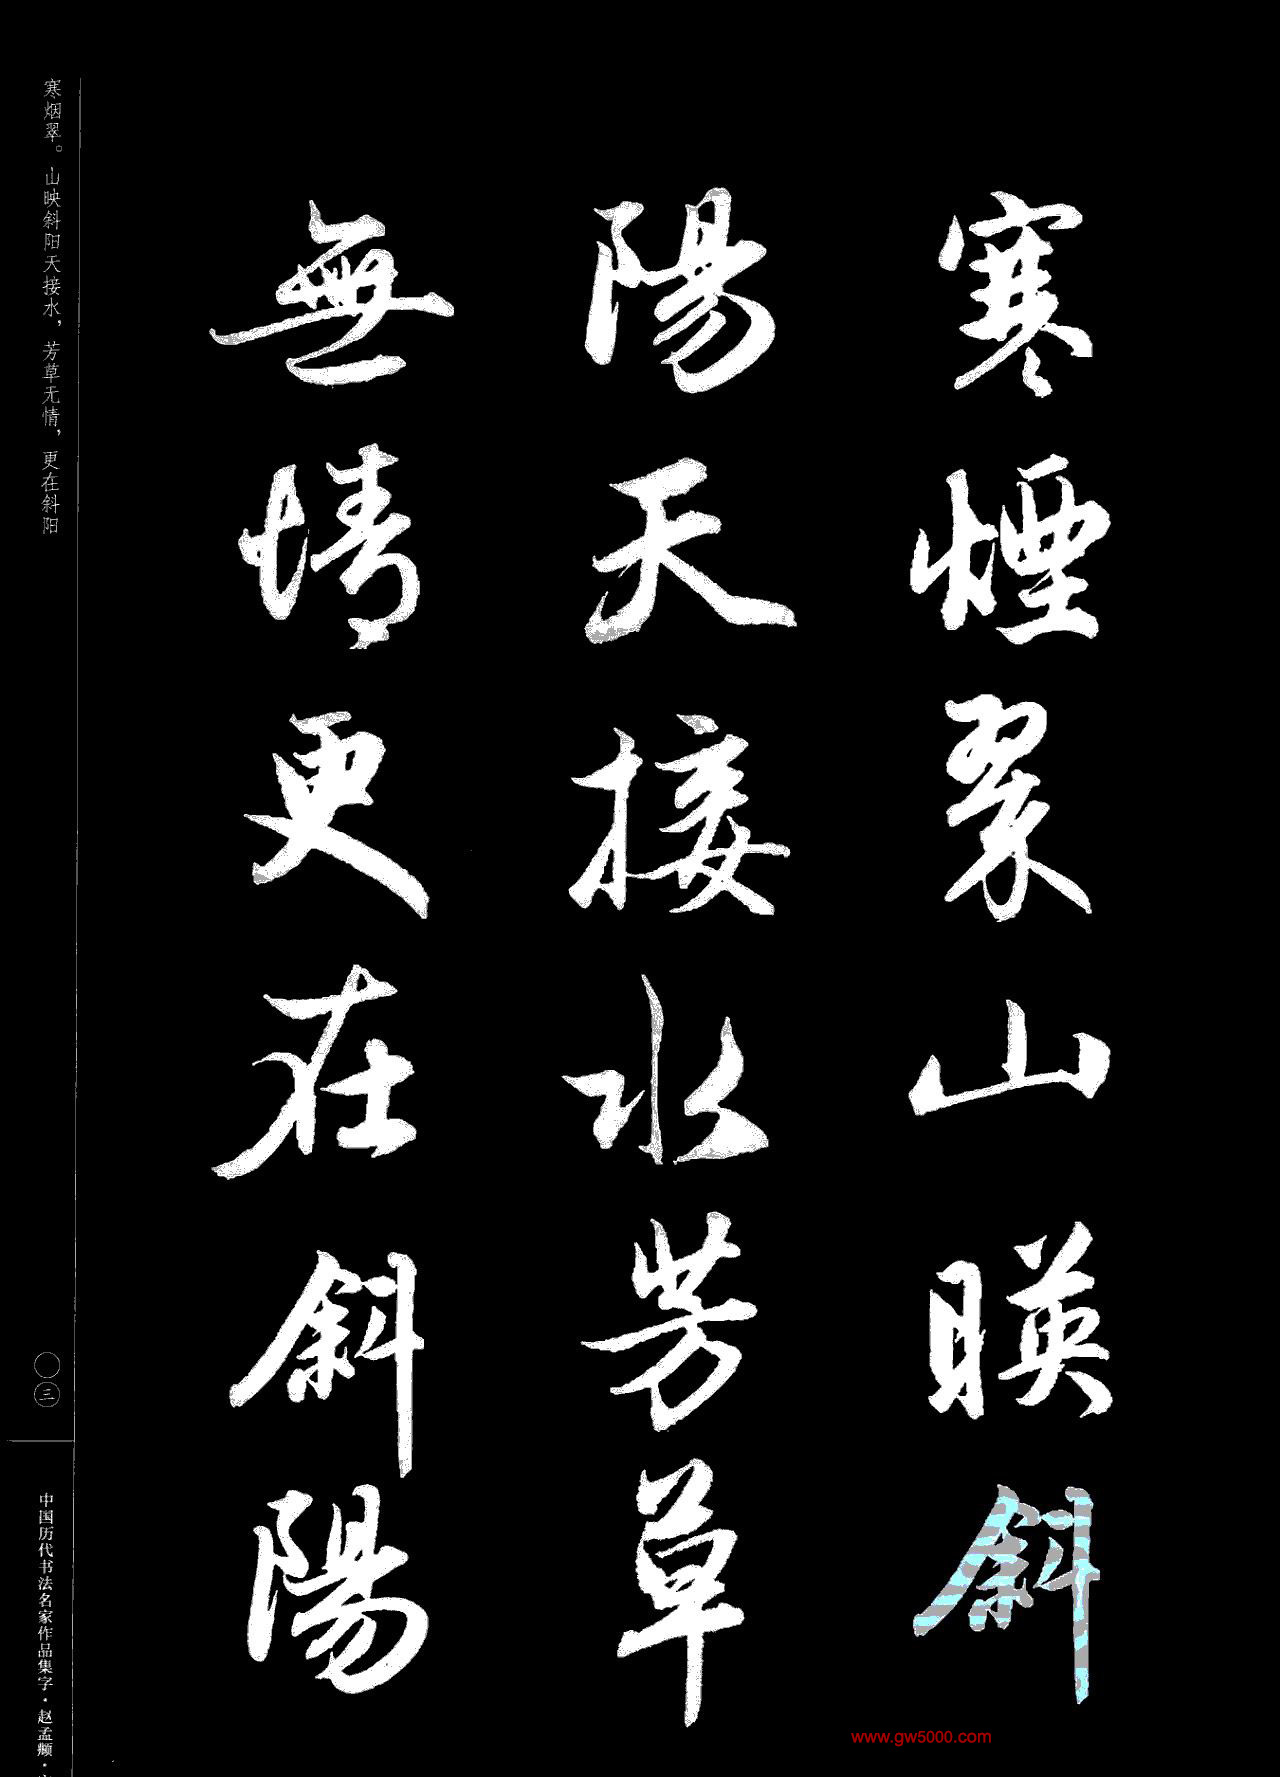 寒煙翠山暎斜
陽天接水芳草
無情更在斜陽
寒烟翠。山映斜阳天接水，芳草无情，更在斜阳
〇三
中国历代书法名家作品集字·赵孟頫·
www.gw5000.com